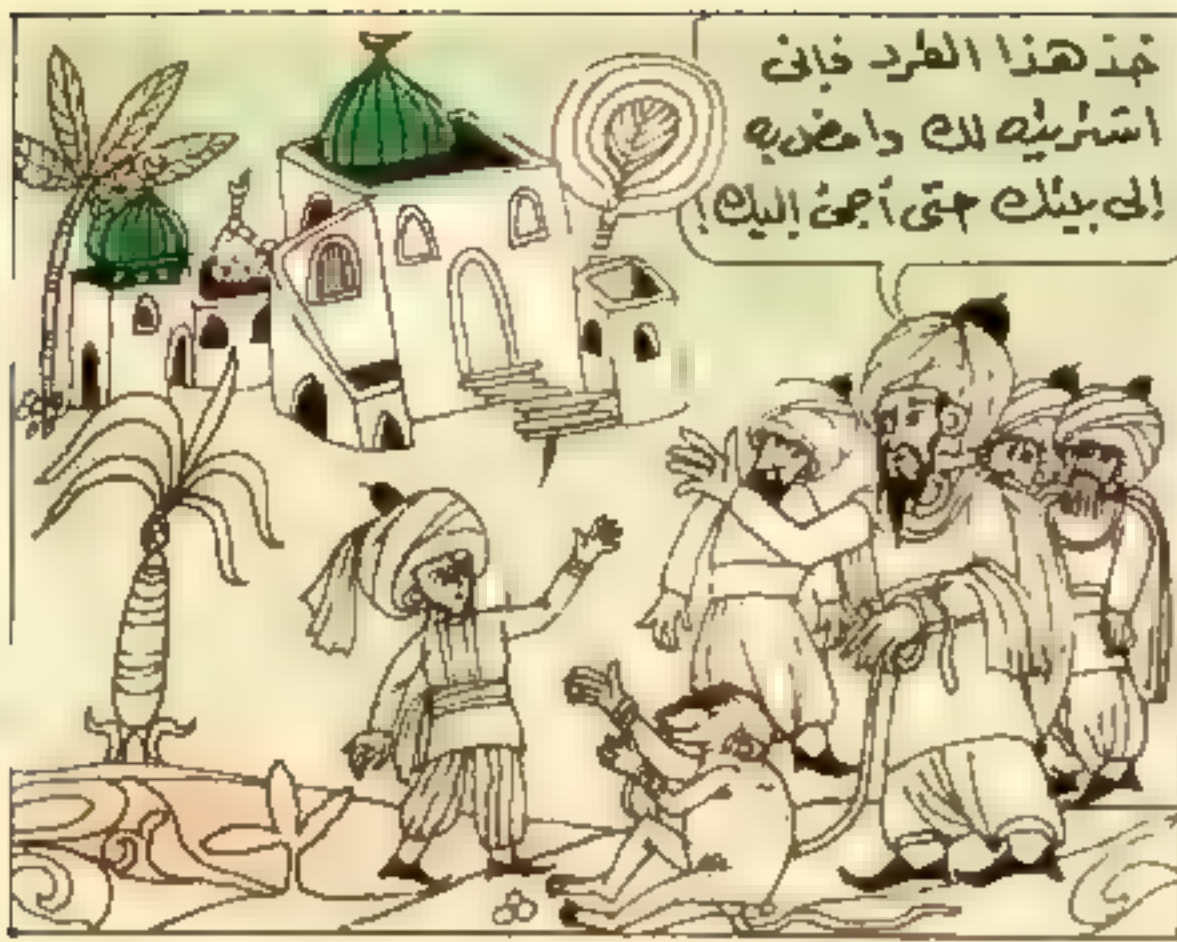 خذ هذا القرد فإنى
اشتريته لك وامض به
إلى بيتك حتى أجئ إليك!